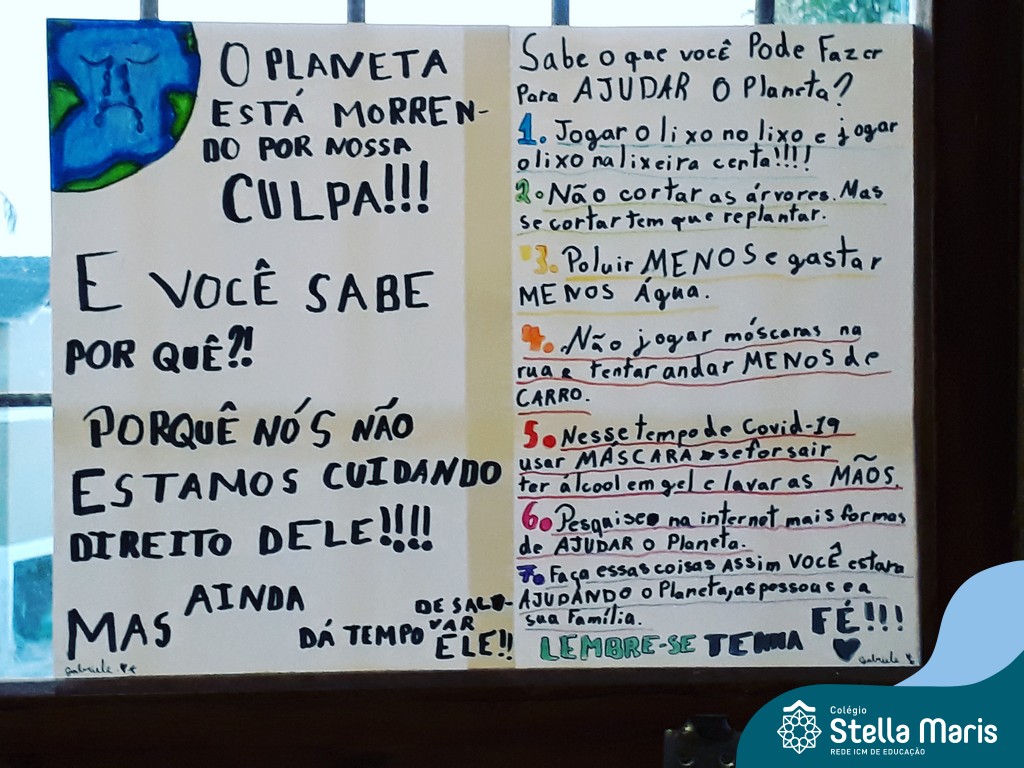 O PLANETA
ESTÁ MORREN-
DO POR NOSSA
CULPA!!!
E VOCÊ SABE
POR QUÊ?!
PORQUÊ NÓS NÃO
ESTAMOS CUIDANDO
DIREITO DELE!!!!
MAS AINDA
DÁ TEMPO DE SALV-
VAR
ELE!!
Gabriele
Sabe o que você Pode Fazer
Para AJUDAR O Planeta?
1. Jogar o lixo no lixo e jogar
o lixo na lixeira certa!!!!
2. Não cortar as árvores. Mas
se cortar tem que replantar.
3. Poluir MENOS e gastar
MENOS Água.
4. Não jogar máscaras na
rua e tentar andar MENOS de
CARRO.
5. Nesse tempo de Covid-19
usar MÁSCARA se for sair
ter álcool em gel e lavar as MÃOS.
6. Pesquise na internet mais formas
de AJUDAR o Planeta.
7. Faça essas coisas Assim VOCÊ estara
AJUDANDO o Planeta, as pessoas e a
sua Família.
LEMBRE-SE TENHA FÉ!!!
Gabriele
Colégio
Stella Maris
REDE ICM DE EDUCAÇÃO